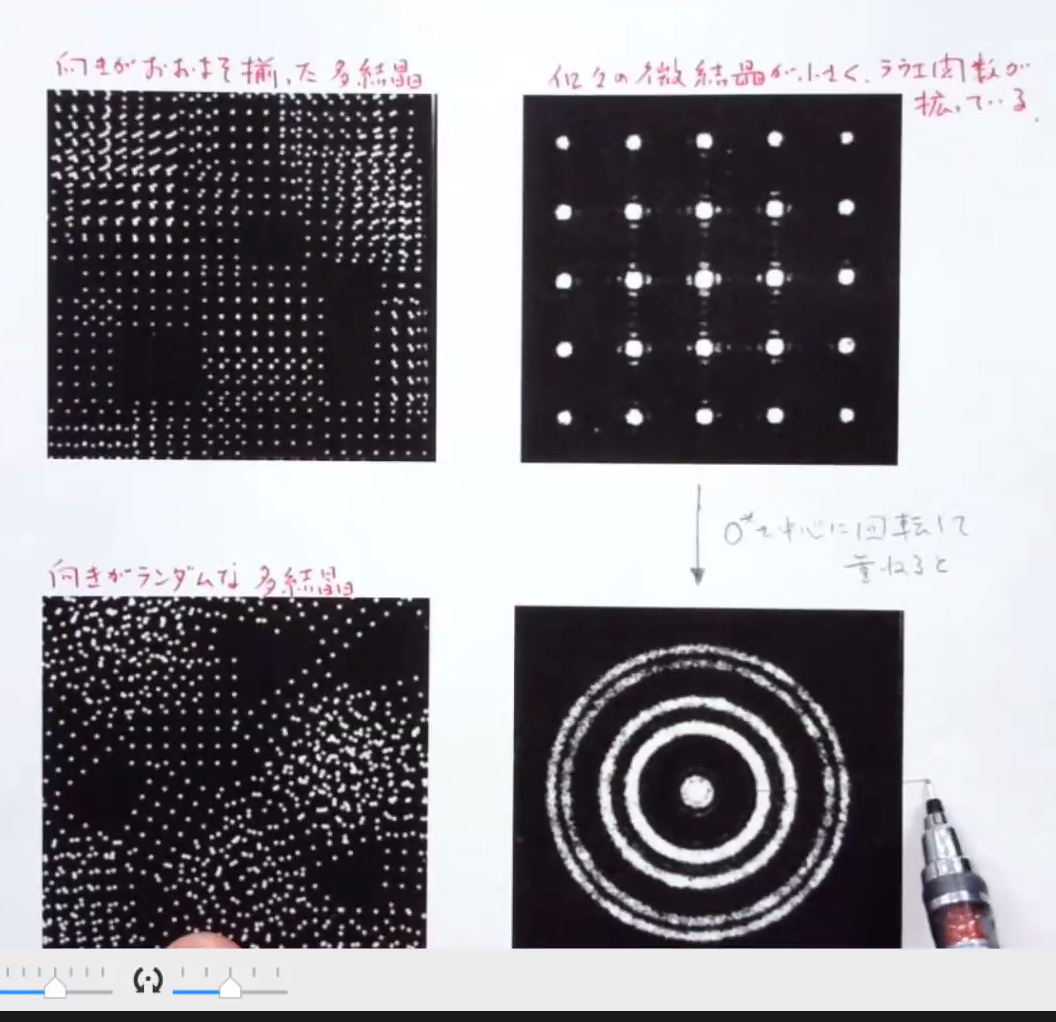 向きがおおよそ揃った多結晶
個々の微結晶が小さく、ラウエ関数が
拡っている.
0*を中心に回転して
重ねると
向きがランダムな多結晶